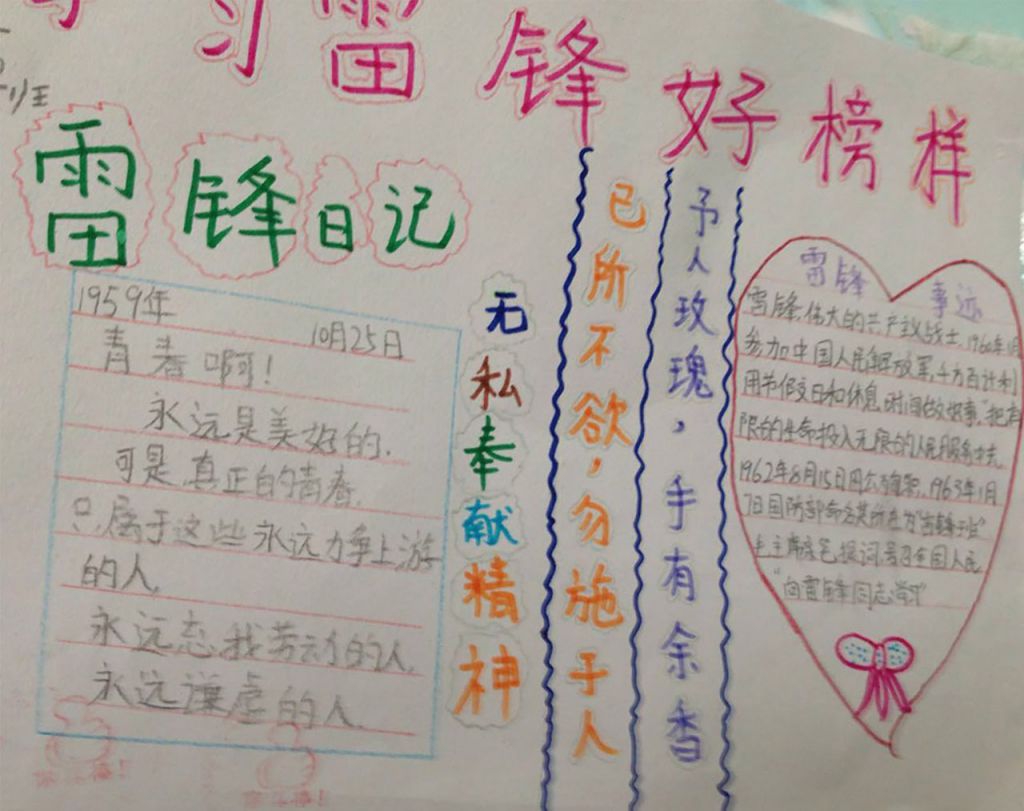 习雷锋好榜样
雷锋日记
1959年
10月25日
青春啊!
永远是美好的.
可是,真正的青春.
只属于这些永远力争上游
的人,
永远忘我劳动的人
永远谦虚的人.
无私奉献精神
已所不欲,勿施于人
予人玫瑰,手有余香
雷锋事迹
雷锋,伟大的共产主义战士.1960年1月
参加中国人民解放军,千方百计利
用节假日和休息时间做好事."把有
限的生命投入无限的人民服务中去
1962年8月15日因公殉职.1963年1月
7日国防部命名其所在为"雷锋班"
毛主席 题词号召全国人民
"向雷锋同志学习"